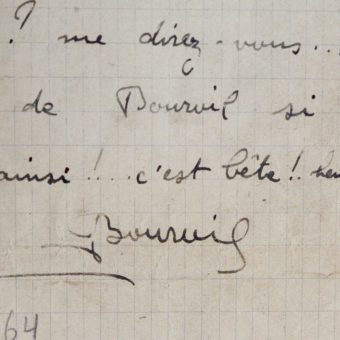 ? me direz-vous...
de Bourvil si
ainsi!... c'est bête! heu
Bourvil
64